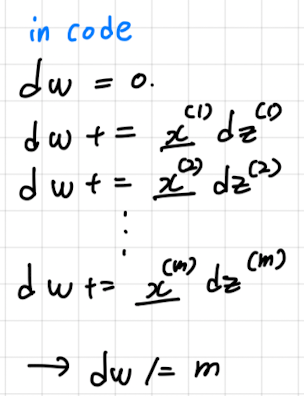 in code
dw = 0.
dw += x^(1) dz^(1)
dw += x^(2) dz^(2)
⋮
dw += x^(m) dz^(m)
→ dw /= m